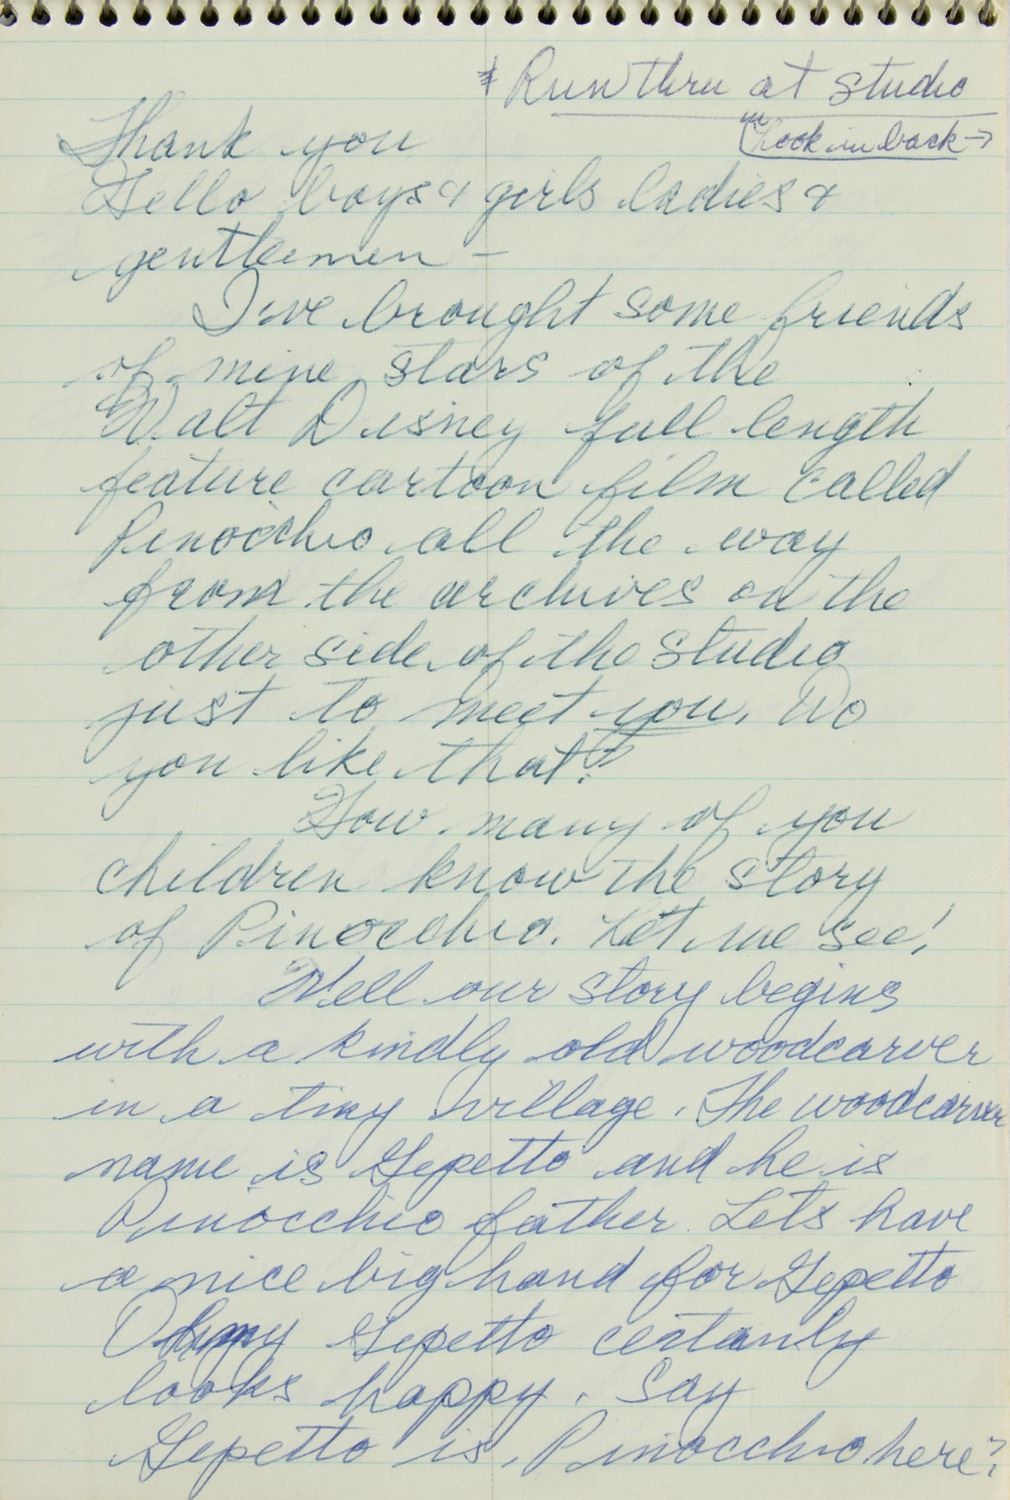 * Run thru at studio
(Look in back →
Thank you
Hello boys & girls ladies &
gentlemen –
I've brought some friends
of mine stars of the
Walt Disney full length
feature cartoon film called
Pinocchio all the way
from the archives on the
other side of the studio
just to meet you. Do
you like that?
How many of you
children know the story
of Pinocchio. Let me see!
Well our story begins
with a kindly old woodcarver
in a tiny village. The woodcarver
name is Gepetto and he is
Pinocchio father. Lets have
a nice big hand for Gepetto
Oh my Gepetto certanly
looks happy. Say
Gepetto is Pinocchio here?